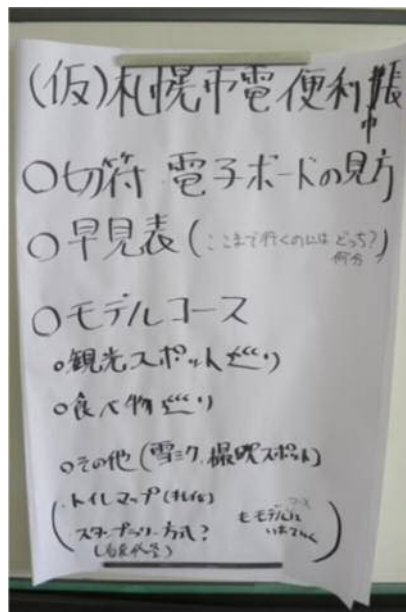 (仮)札幌市電便利帳
○切符 電子ボードの見方
○早見表(ここまで行くのには どっち?
何分)
○モデルコース
○観光スポット巡り
○食べ物巡り
○その他(雪ミク、撮影スポット)
・トイレマップ(きれいな)
スタンプラリー方式?
もモデルコース
いれていく